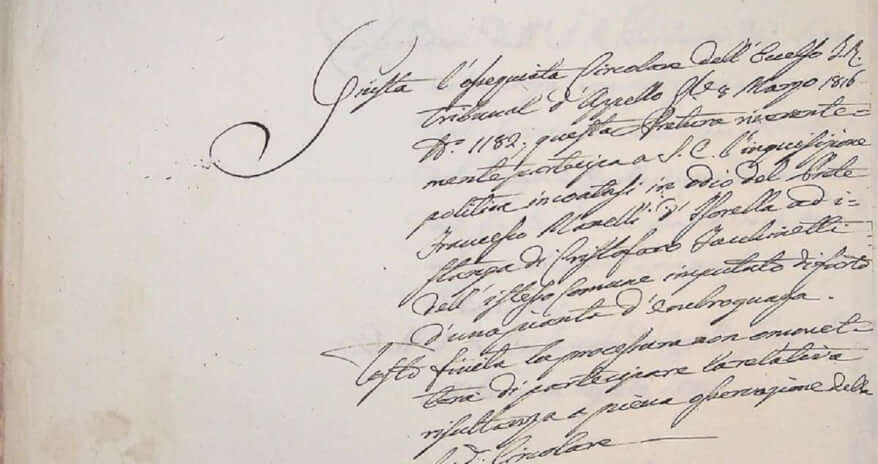 Giusta l'ossequiata Circolare dell'Eccelso I. R.
Tribunal d'Appello 8 Marzo 1816
N.° 1182; questa Pretura riverente=
mente partecipa a S. C. l'inquisizione
politica incoatasi in odio del Prete
Francesco Manelli d' ad i=
stanza di Cristoforo Facchinetti
dell'istesso Comune imputato di furto
d'una pianta d'
Tosto finita la processura non ommet=
terà di partecipare la relativa
risultanza a piena osservazione della
d. Circolare